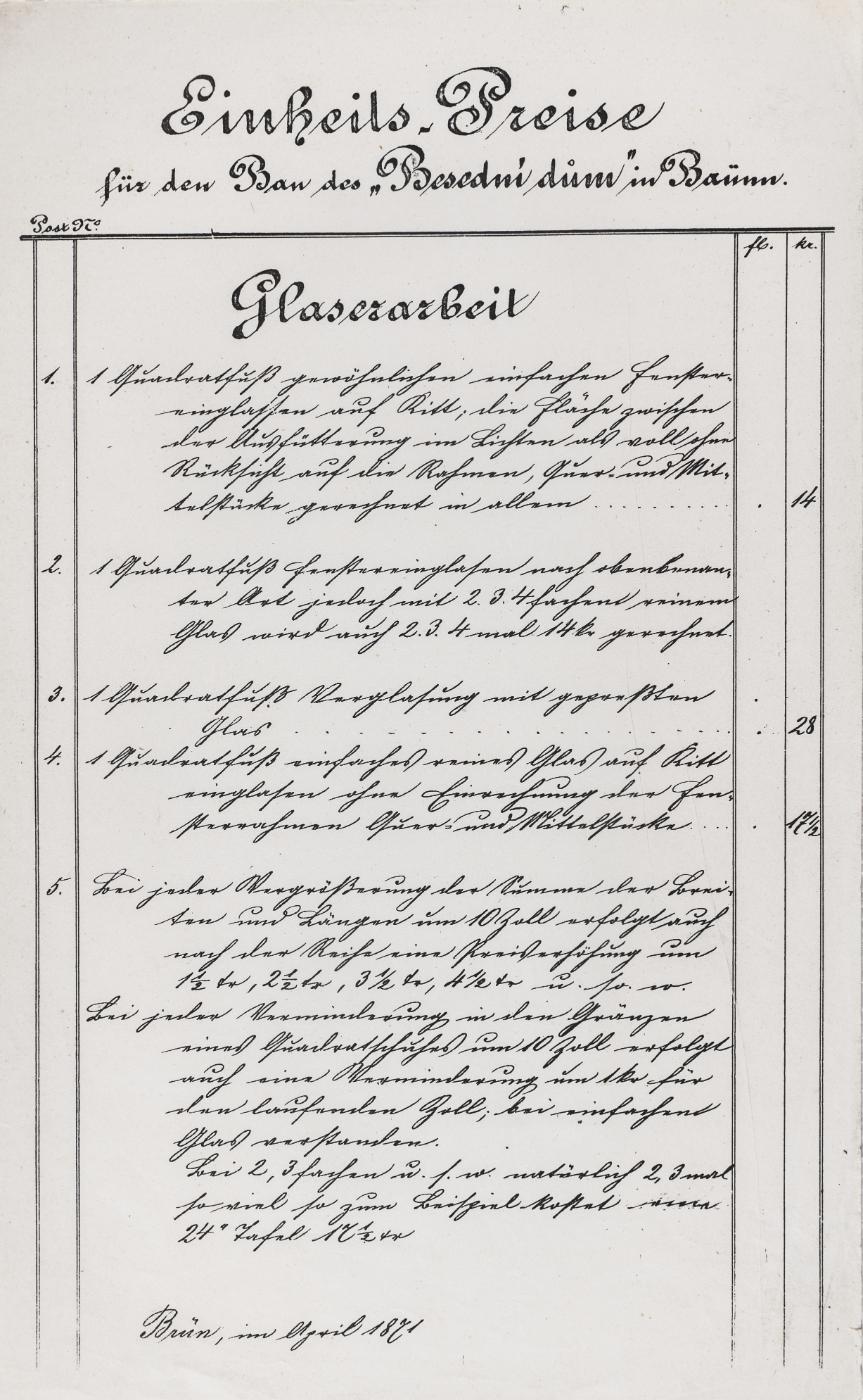 Einheits-Preise
für den Bau des „Besedni dům" in Baünn.
Post No
fl. kr.
Glaserarbeit
1. 1 Quadratfuß gewöhnlichen einfachen Fenster-
einglassen auf Kitt; die Fläche zwischen
der Ausfütterung im Lichten als voll ohne
Rücksicht auf die Rahmen, Quer- und Mit-
telstücke gerechnet in allem . . . . . . . . . . 14
2. 1 Quadratfuß Fenstereinglasen nach obenbenan-
ter Art jedoch mit 2. 3. 4 fachem reinem
Glas wird auch 2. 3. 4 mal 14 kr gerechnet.
3. 1 Quadratfuß Verglasung mit gepreßten
Glas . . . . . . . . . . . . . 28
4. 1 Quadratfuß einfaches reines Glas auf Kitt
einglasen ohne Einrechnung der Fen-
sterrahmen Quer- und Mittelstücke . . . . 17½
5. Bei jeder Vergrößerung der Summe der Brei-
ten und Längen um 10 Zoll erfolgt auch
nach der Reihe eine Preiserhöhung um
1½ kr, 2½ kr, 3½ kr, 4½ kr u. so. w.
Bei jeder Verminderung in den Gränzen
eines Quadratschuhes um 10 Zoll erfolgt
auch eine Verminderung um 1 kr für
den laufenden Zoll; bei einfachem
Glas verstanden.
Bei 2, 3 fachen u. s. w. natürlich 2, 3 mal
so viel so zum Beispiel kostet eine
24" Tafel 17½ kr
Brün, im April 1871